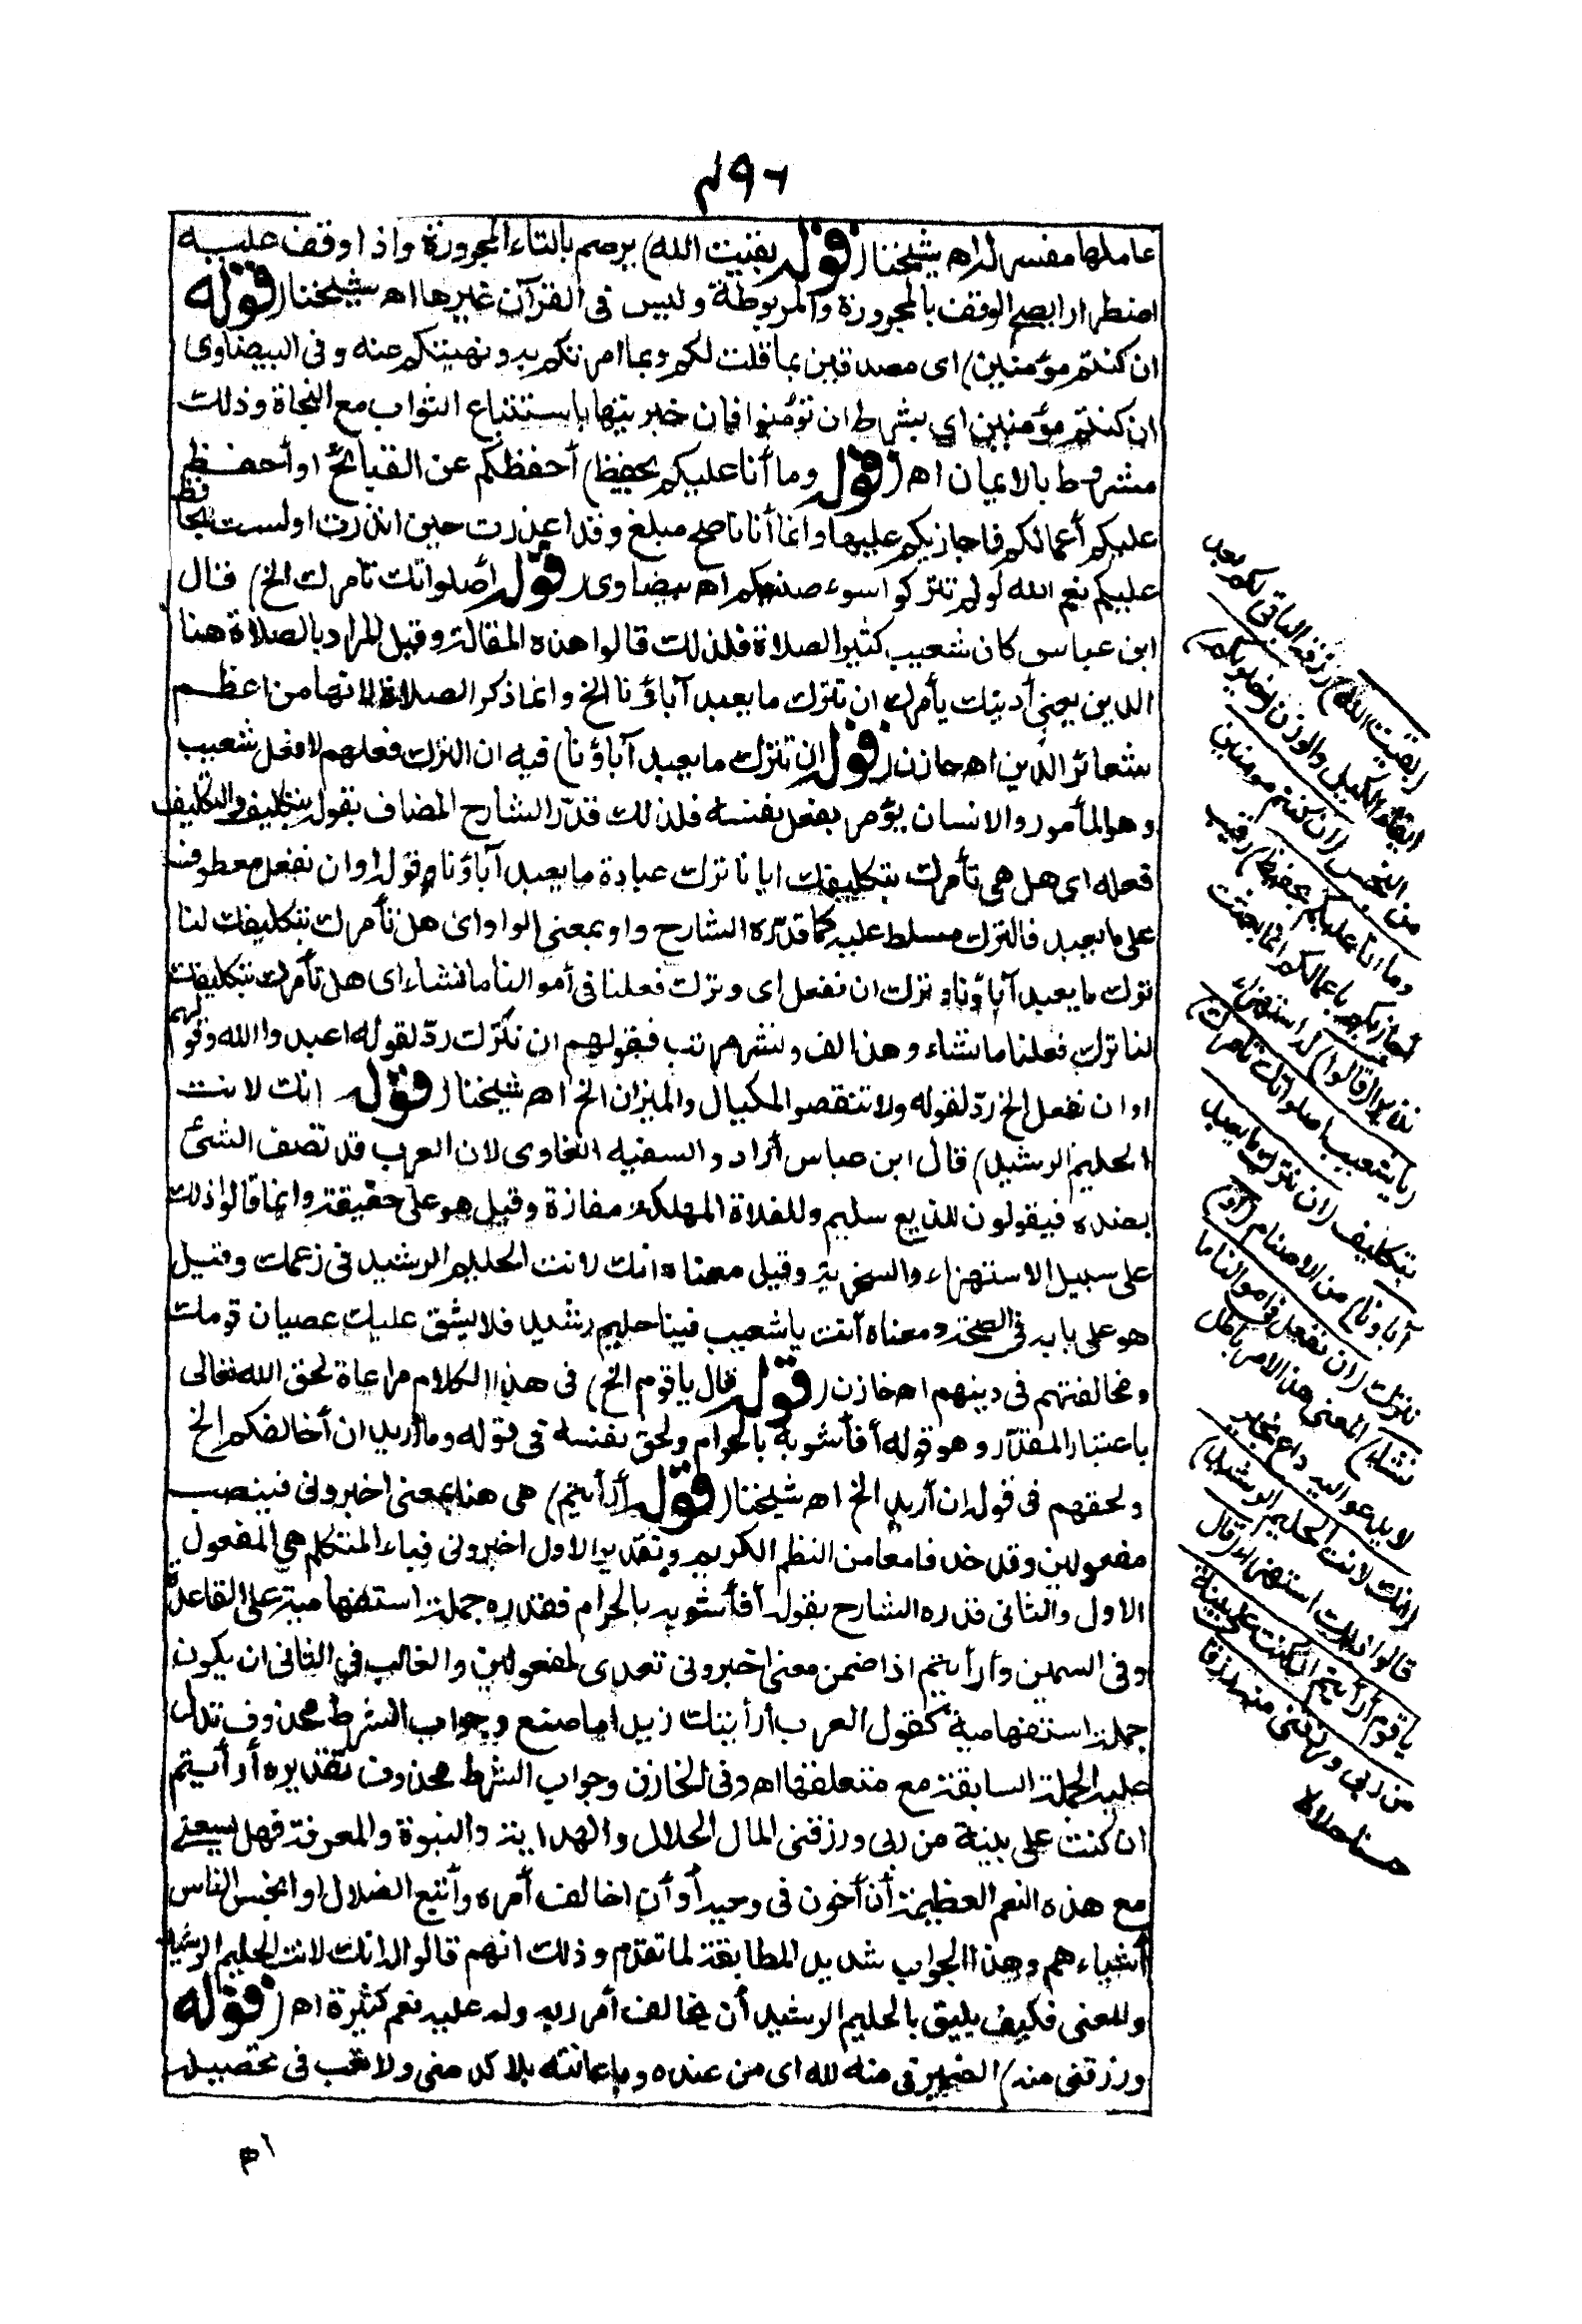 ٤٩٦
عاملها مفسر له اه شيخنا (قوله بقيت الله) يرسم بالتاء المجرورة واذا وقف عليه
اضطرارا يصح الوقف بالمجرورة والمربوطة وليس في القرآن غيرها اه شيخنا (قوله
ان كنتم مؤمنين) اى مصدقين بما قلت لكم وبما امرتكم به ونهيتكم عنه وفى البيضاوى
ان كنتم مؤمنين اى بشرط ان تؤمنوا فان خيريتها باستتباع الثواب مع النجاة وذلك
مشروط بالايمان اه (قوله وما أنا عليكم بحفيظ) أحفظكم عن القبائح او أحفظ
عليكم أعمالكم فاجازيكم عليها وانما أنا ناصح مبلغ وقد اعذرت حين انذرت او لست بحافظ
عليكم نعم الله لو لم تتركوا سوء صنيعكم اه بيضاوى (قوله أصلواتك تامرك الخ) قال
ابن عباس كان شعيب كثير الصلاة فلذلك قالوا هذه المقالة وقيل المراد بالصلاة هنا
الدين يعنى أدينك يأمرك ان نترك ما يعبد آباؤنا الخ وانما ذكر الصلاة لانها من اعظم
شعائر الدين اه خازن (قوله ان نترك ما يعبد آباؤنا) فيه ان الترك فعلهم لا فعل شعيب
وهو المأمور والانسان يؤمر بفعل نفسه فلذلك قدّر الشارح المضاف بقوله بتكليف والتكليف
فعله اى هل هى تأمرك بتكليفك ايانا ترك عبادة ما يعبد آباؤنا وقوله او ان نفعل معطوف
على ما يعبد فالترك مسلط عليه كما قدّره الشارح واو بمعنى الواو اى هل تأمرك بتكليفك لنا
نترك ما يعبد آباؤنا وترك ان نفعل اى وترك فعلنا فى أموالنا ما نشاء اى هل تأمرك بتكليفك
لنا ترك فعلنا ما نشاء وهذا لف ونشر مرتب فقولهم ان نترك ردّ لقوله اعبدوا الله وقولهم
او ان نفعل الخ ردّ لقوله ولا تنقصوا المكيال والميزان الخ اه شيخنا (قوله انك لانت
الحليم الرشيد) قال ابن عباس أراد والسفيه الغاوى لان العرب قد تصف الشئ
بضده فيقولون للديغ سليم وللفلاة المهلكة مفازة وقيل هو على حقيقته وانما قالوا ذلك
على سبيل الاستهزاء والسخرية وقيل معناه انك لانت الحليم الرشيد فى زعمك وقيل
هو على بابه فى الصحة ومعناه أنت يا شعيب فينا حليم رشيد فلا يشق عليك عصيان قومك
ومخالفتهم فى دينهم اه خازن (قوله قال يا قوم الخ) فى هذا الكلام مراعاة لحق الله تعالى
باعتبار المقدّر وهو قوله أفأشوبه بالحرام ولحق نفسه فى قوله وما أريد ان أخالفكم الخ
ولحقهم فى قوله ان أريد الخ اه شيخنا (قوله أرأيتم) هى هنا بمعنى اخبرونى فينصب
مفعولين وقد حذفا معا من النظم الكريم وتقدير الاول اخبرونى فياء المتكلم هي المفعول
الاول والثانى قدره الشارح بقوله أفأشوبه بالحرام فقدره جملة استفهامية على القاعدة
وفى السمين وأرأيتم اذا ضمن معنى اخبرونى تعدى لمفعولين والغالب في الثانى ان يكون
جملة استفهامية كقول العرب أرأيتك زيدا ما صنع وجواب الشرط محذوف تدل
عليه الجملة السابقة مع متعلقها اه وفى الخازن وجواب الشرط محذوف تقديره أرأيتم
ان كنت على بينة من ربى ورزقنى المال الحلال والهداية والنبوة والمعرفة فهل يسعنى
مع هذه النعم العظيمة أن أخون فى وحيه أو أن اخالف أمره وأتبع الضلال او ابخس الناس
أشياءهم وهذا الجواب شديد المطابقة لما تقدم وذلك انهم قالوا له انك لانت الحليم الرشيد
والمعنى فكيف يليق بالحليم الرشيد أن يخالف أمر ربه وله عليه نعم كثيرة اه (قوله
ورزقنى منه) الضمير فى منه لله اى من عنده وباعانته بلا كد منى ولا تعب فى تحصيل
(بقيت الله) رزقه الباقى لكم بعد
ايفاء الكيل والوزن (خير لكم)
من البخس (ان كنتم مومنين
وما انا عليكم بحفيظ) رقيب
اجازيكم باعمالكم انما بعثت
نذيرا (قالوا) له استهزاء
(يا شعيب اصلواتك تامرك)
بتكليف (ان نترك ما يعبد
آباؤنا) من الاصنام (او)
نترك (ان نفعل فى اموالنا ما
نشاء) المعنى هذا الامر باطل
لا يدعو اليه داع بخير
(انك لانت الحليم الرشيد)
قالوا ذلك استهزاء (قال
يا قوم أرأيتم ان كنت على بينة
من ربى ورزقنى منه رزقا
حسنا حلالا